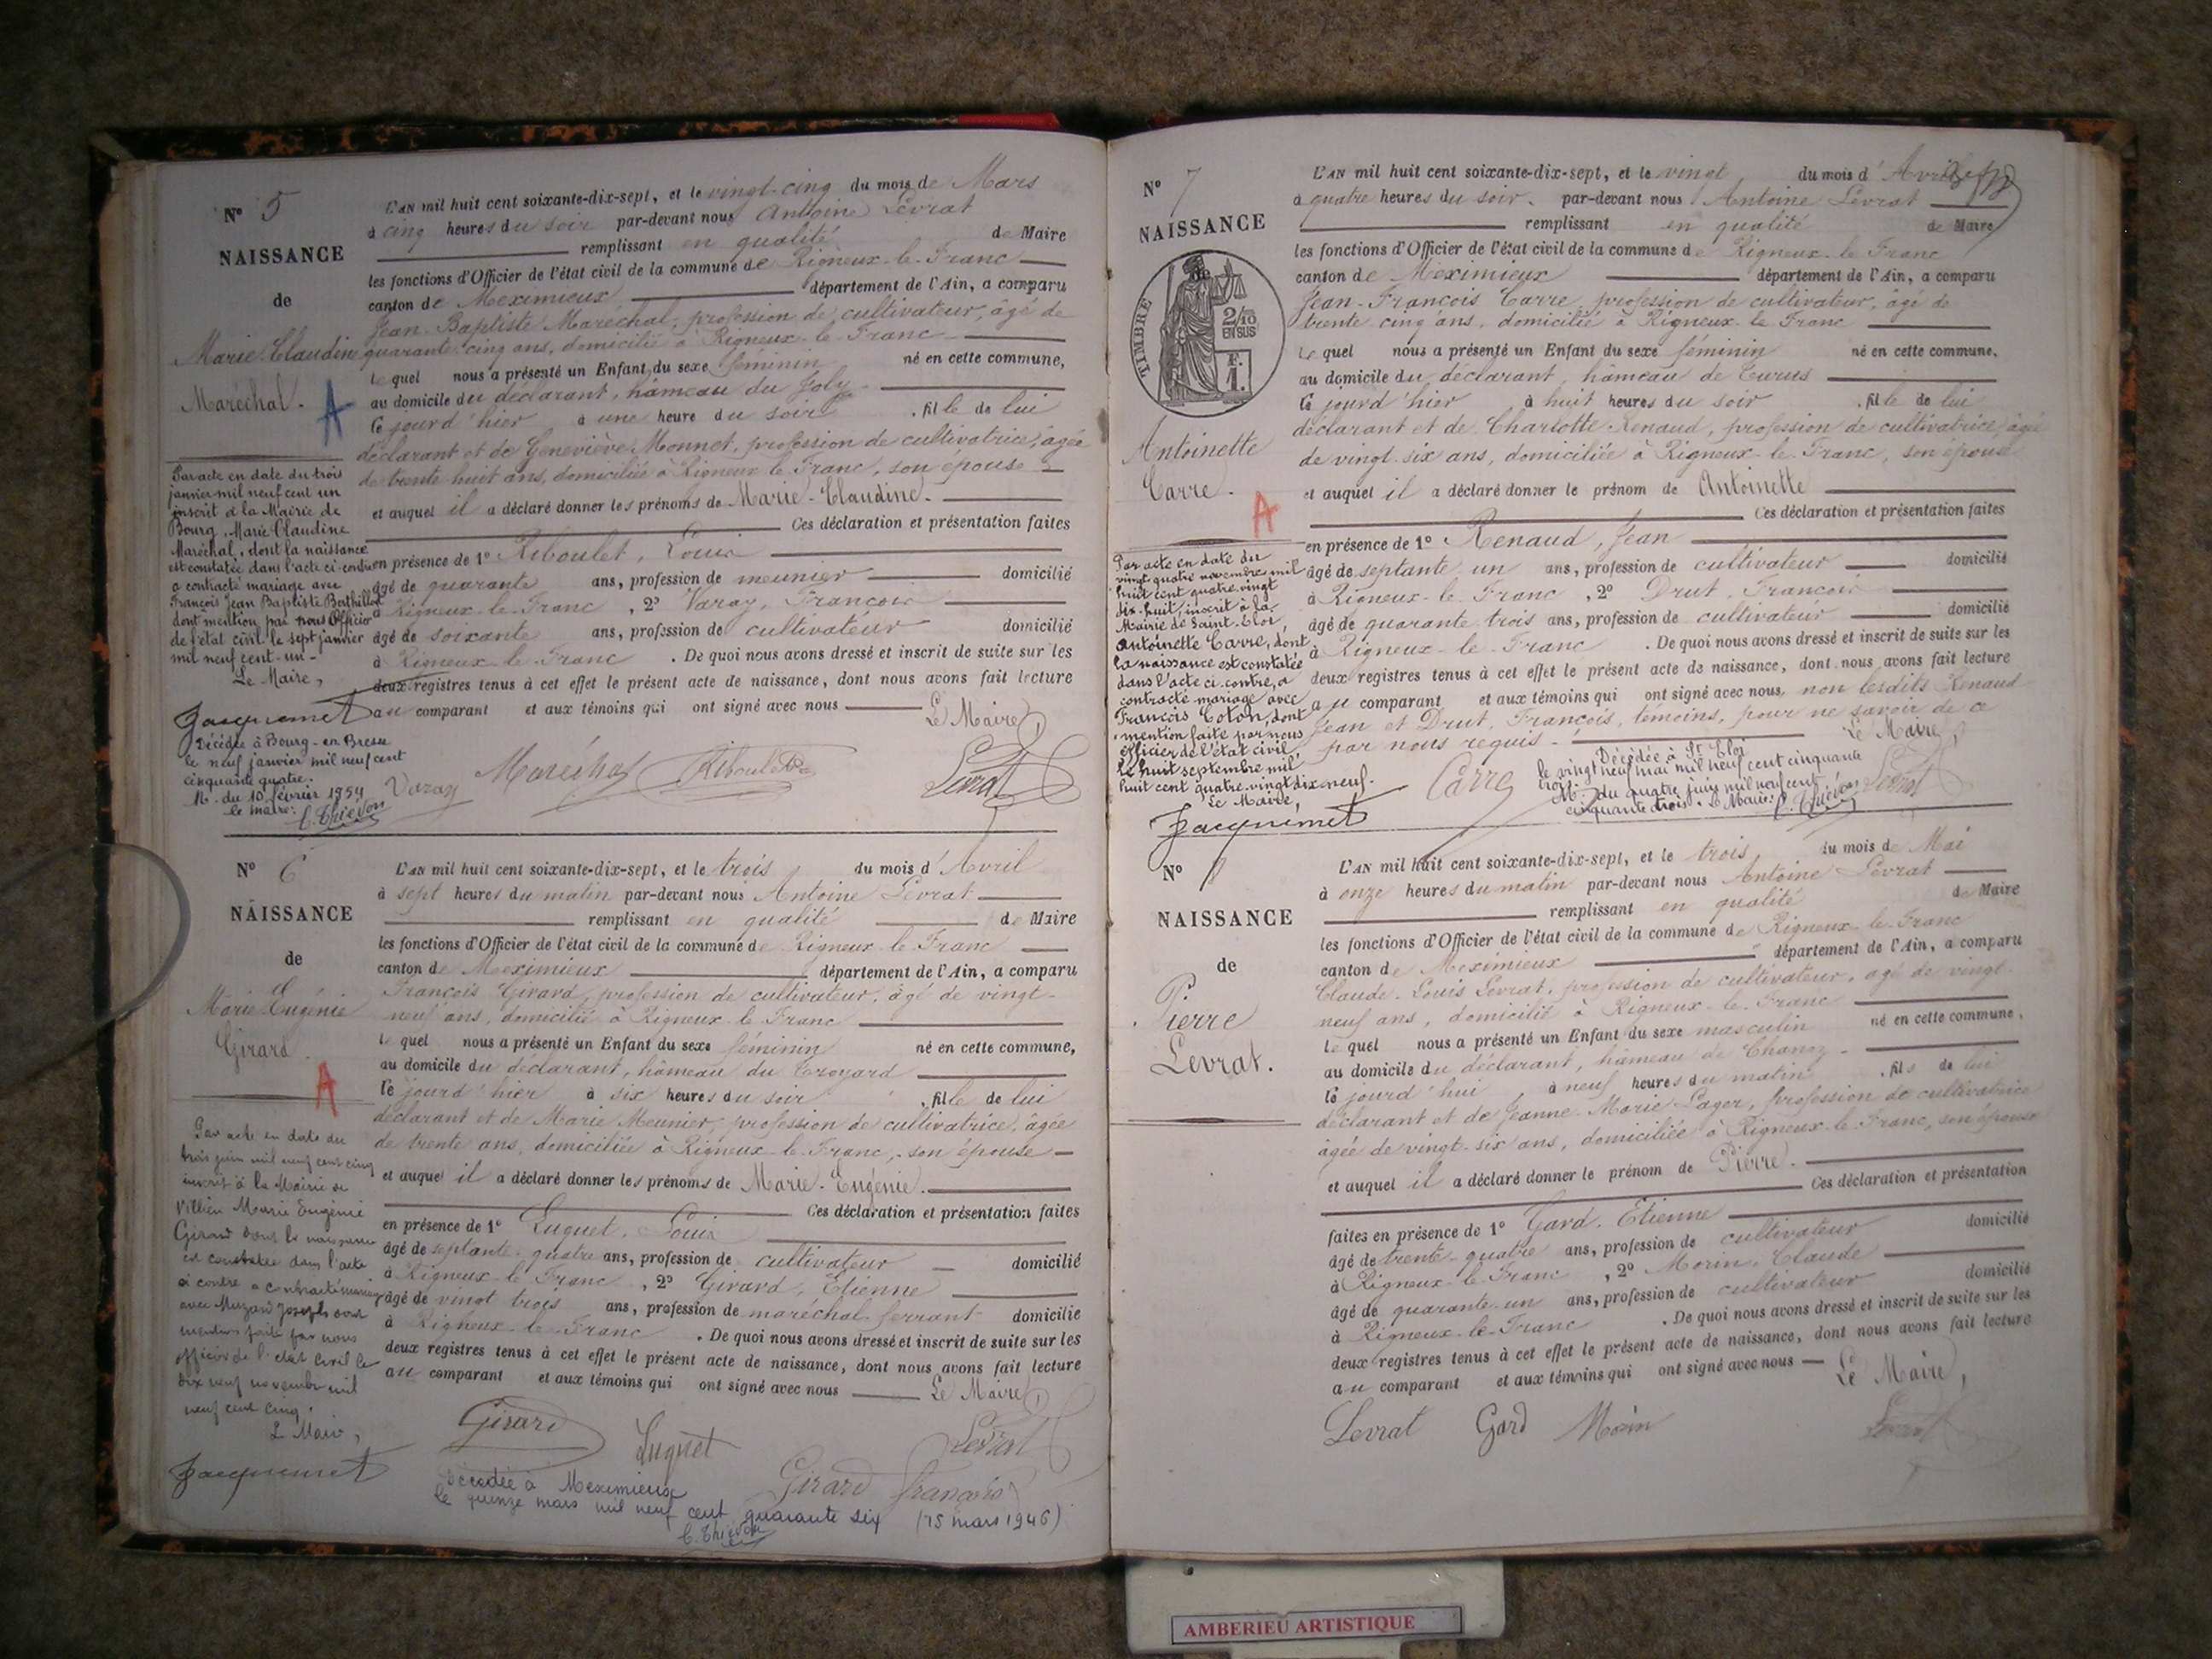 N° 5
NAISSANCE
de
Marie Claudine
Maréchal.
A
Par acte en date du trois
janvier mil neuf cent un
inscrit à la Mairie de
Bourg, Marie Claudine
Maréchal, dont la naissance
est constatée dans l'acte ci-contre
a contracté mariage avec
François Jean Baptiste Berthillot
dont mention par nous Officier
de l'état civil le sept janvier
mil neuf cent un -
Le Maire,
Jacquemet
Décédée à Bourg-en-Bresse
le neuf janvier mil neuf cent
cinquante quatre.
N. du 10 février 1954
le maire: C. Thiévon
L'AN mil huit cent soixante-dix-sept, et le vingt-cinq du mois de Mars
à cinq heures du soir par-devant nous Antoine Levrat
remplissant en qualité de Maire
les fonctions d'Officier de l'état civil de la commune de Rigneux-le-Franc
canton de Meximieux département de l'Ain, a comparu
Jean-Baptiste Maréchal, profession de cultivateur, âgé de
quarante-cinq ans, domicilié à Rigneux-le-Franc
Lequel nous a présenté un Enfant du sexe féminin né en cette commune,
au domicile du déclarant, hâmeau du Joly
Ce jourd'hier à une heure du soir, fille de lui
déclarant et de Geneviève Monnet, profession de cultivatrice, âgée
de trente huit ans, domiciliée à Rigneux-le-Franc, son épouse
et auquel il a déclaré donner les prénoms de Marie-Claudine.
Ces déclaration et présentation faites
en présence de 1° Riboulet, Louis
âgé de quarante ans, profession de meunier domicilié
à Rigneux-le-Franc, 2° Varay, François
âgé de soixante ans, profession de cultivateur domicilié
à Rigneux-le-Franc. De quoi nous avons dressé et inscrit de suite sur les
deux registres tenus à cet effet le présent acte de naissance, dont nous avons fait lecture
au comparant et aux témoins qui ont signé avec nous
Le Maire,
Varay Maréchal Riboulet Levrat
N° 6
NAISSANCE
de
Marie Eugénie
Girard
A
Par acte en date du
trois juin mil neuf cent cinq
inscrit à la Mairie de
Villieu Marie Eugénie
Girard dont la naissance
est constatée dans l'acte
ci contre a contracté mariage
avec Muzard Joseph dont
mention faite par nous
officier de l'état civil le
dix neuf novembre mil
neuf cent cinq.
Le Maire,
Jacquemet
L'AN mil huit cent soixante-dix-sept, et le trois du mois d'Avril
à sept heures du matin par-devant nous Antoine Levrat
remplissant en qualité de Maire
les fonctions d'Officier de l'état civil de la commune de Rigneux-le-Franc
canton de Meximieux département de l'Ain, a comparu
François Girard, profession de cultivateur, âgé de vingt-
neuf ans, domicilié à Rigneux-le-Franc
Lequel nous a présenté un Enfant du sexe féminin né en cette commune,
au domicile du déclarant, hâmeau du Croyard
Ce jourd'hier à six heures du soir, fille de lui
déclarant et de Marie Meunier, profession de cultivatrice, âgée
de trente ans, domiciliée à Rigneux-le-Franc, son épouse
et auquel il a déclaré donner les prénoms de Marie-Eugénie.
Ces déclaration et présentation faites
en présence de 1° Luguet, Louis
âgé de septante-quatre ans, profession de cultivateur domicilié
à Rigneux-le-Franc, 2° Girard, Etienne
âgé de vingt trois ans, profession de maréchal ferrant domicilié
à Rigneux-le-Franc. De quoi nous avons dressé et inscrit de suite sur les
deux registres tenus à cet effet le présent acte de naissance, dont nous avons fait lecture
au comparant et aux témoins qui ont signé avec nous Le Maire
Girard Luguet Levrat
Girard François
Décédée à Meximieux
le quinze mars mil neuf cent quarante six (15 mars 1946)
C. Thiévon
N° 7
NAISSANCE
TIMBRE
2/10
EN SUS
F.
1.
Antoinette
Carre.
A
Par acte en date du
vingt quatre novembre mil
huit cent quatre vingt
dix-huit, inscrit à la
Mairie de Saint-Eloi,
Antoinette Carre, dont
la naissance est constatée
dans l'acte ci-contre, a
contracté mariage avec
François Coton, dont
mention faite par nous
officier de l'état civil
le huit septembre mil
huit cent quatre-vingt-dix-neuf.
Le Maire,
Jacquemet
L'AN mil huit cent soixante-dix-sept, et le vingt du mois d'Avril
à quatre heures du soir. par-devant nous Antoine Levrat
remplissant en qualité de Maire
les fonctions d'Officier de l'état civil de la commune de Rigneux-le-Franc
canton de Meximieux département de l'Ain, a comparu
Jean-François Carre, profession de cultivateur, âgé de
trente cinq ans, domicilié à Rigneux-le-Franc
Lequel nous a présenté un Enfant du sexe féminin né en cette commune,
au domicile du déclarant, hâmeau de Curus
Ce jourd'hier à huit heures du soir, fille de lui
déclarant et de Charlotte Renaud, profession de cultivatrice, âgée
de vingt-six ans, domiciliée à Rigneux-le-Franc, son épouse
et auquel il a déclaré donner le prénom de Antoinette
Ces déclaration et présentation faites
en présence de 1° Renaud, Jean
âgé de septante un ans, profession de cultivateur domicilié
à Rigneux-le-Franc, 2° Drut, François
âgé de quarante trois ans, profession de cultivateur domicilié
à Rigneux-le-Franc. De quoi nous avons dressé et inscrit de suite sur les
deux registres tenus à cet effet le présent acte de naissance, dont nous avons fait lecture
au comparant et aux témoins qui ont signé avec nous, non lesdits Renaud
Jean et Drut, François, témoins, pour ne savoir de ce
par nous requis -
Le Maire,
Carre Levrat
Décédée à St Eloi
le vingt neuf mai mil neuf cent cinquante
trois.
M. du quatre juin mil neuf cent
cinquante trois. Le Maire: C. Thiévon
N° 8
NAISSANCE
de
P.
Pierre
Levrat.
L'AN mil huit cent soixante-dix-sept, et le trois du mois de Mai
à onze heures du matin par-devant nous Antoine Levrat
remplissant en qualité de Maire
les fonctions d'Officier de l'état civil de la commune de Rigneux-le-Franc
canton de Meximieux département de l'Ain, a comparu
Claude-Louis Levrat, profession de cultivateur, âgé de vingt-
neuf ans, domicilié à Rigneux-le-Franc
Lequel nous a présenté un Enfant du sexe masculin né en cette commune,
au domicile du déclarant, hâmeau de Chanoz
Ce jourd'hui à neuf heures du matin, fils de lui
déclarant et de Jeanne-Marie Pager, profession de cultivatrice
âgée de vingt-six ans, domiciliée à Rigneux-le-Franc, son épouse
et auquel il a déclaré donner le prénom de Pierre.
Ces déclaration et présentation
faites en présence de 1° Gard, Etienne
âgé de trente-quatre ans, profession de cultivateur domicilié
à Rigneux-le-Franc, 2° Morin, Claude
âgé de quarante-un ans, profession de cultivateur domicilié
à Rigneux-le-Franc. De quoi nous avons dressé et inscrit de suite sur les
deux registres tenus à cet effet le présent acte de naissance, dont nous avons fait lecture
au comparant et aux témoins qui ont signé avec nous Le Maire,
Levrat Gard Morin Levrat
AMBERIEU ARTISTIQUE